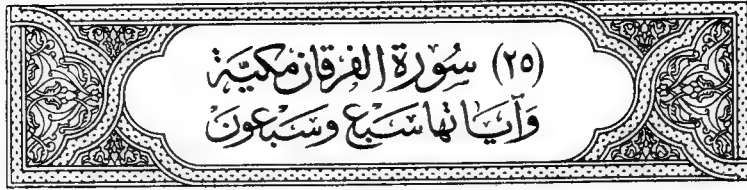 (٢٥) سُورَة الفرقان مكيَّة
وَآيَاتهَا سَبْع وسَبْعونَ